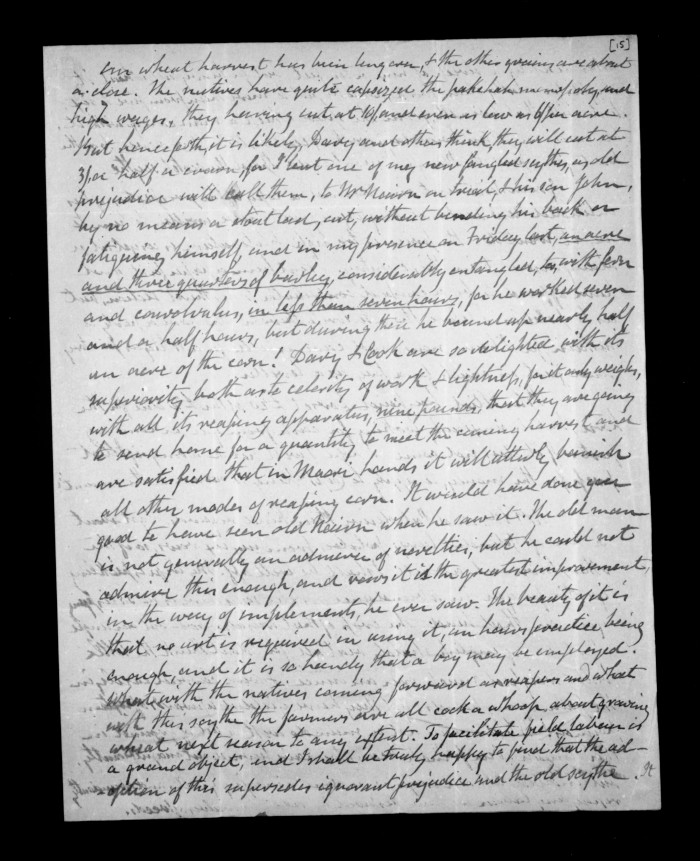 [15]
our wheat harvest has been long over, & the other grains are about
a close. The natives have quite capsized the pakeha monopoly and
high wages, they having cut at 10/ and even as low as 6/ per acre.
But henceforth it is likely, Davy and others think, they will cut at
3/ or half a crown, for I lent one of my new fangled scythes, as old
prejudice will call them, to Mr Nairn on trial, & his son John,
by no means a stout lad, cut, without bending his back or
fatigueing himself, and in my presence on Friday last, an acre
and three quarters of barley, considerably entangled, too, with fern
and convolvulus, in less than seven hours, for he worked seven
and a half hours, but during these he bound up nearly half
an acre of the corn! Davy & Cook are so delighted with its
superiority both as to celerity of work & lightness, for it only weighs,
with all its reaping apparatus, nine pounds, that they are going
to send home for a quantity to meet the coming harvest and
are satisfied that in Maori hands it will utterly banish
all other modes of reaping corn. It would have done you
good to have seen old Nairn when he saw it. The old man
is not generally an admirer of novelties, but he could not
admire this enough, and vows it is the greatest improvement,
in the way of implements, he ever saw. The beauty of it is
that no art is required in using it, an hours practice being
enough, and it is so handy that a boy may be employed.
What with the natives coming forward as reapers and what
with this scythe the farmers are all cock a whoop about growing
wheat next season to any extent. To facilitate field labour is
a grand object, and I shall be truly happy to find that the ad-
option of this supersedes ignorant prejudice and the old scythe. It